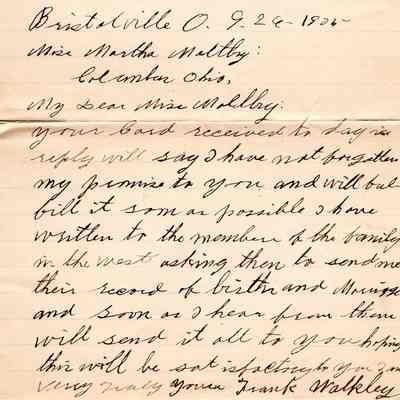 Bristolville O. 9-26-1905-
Miss Martha Maltby:
Columbus Ohio,
My Dear Miss Maltby:
your Card received to day in
reply will say I have not forgotten
my promise to you and will ful-
fill it soon as possible I have
written to the members of the family
in the west asking them to send me
their record of births and Marriage
and soon as I hear from them
will send it all to you hoping
this will be satisfactory to you I am
very truly yours Frank Walkley